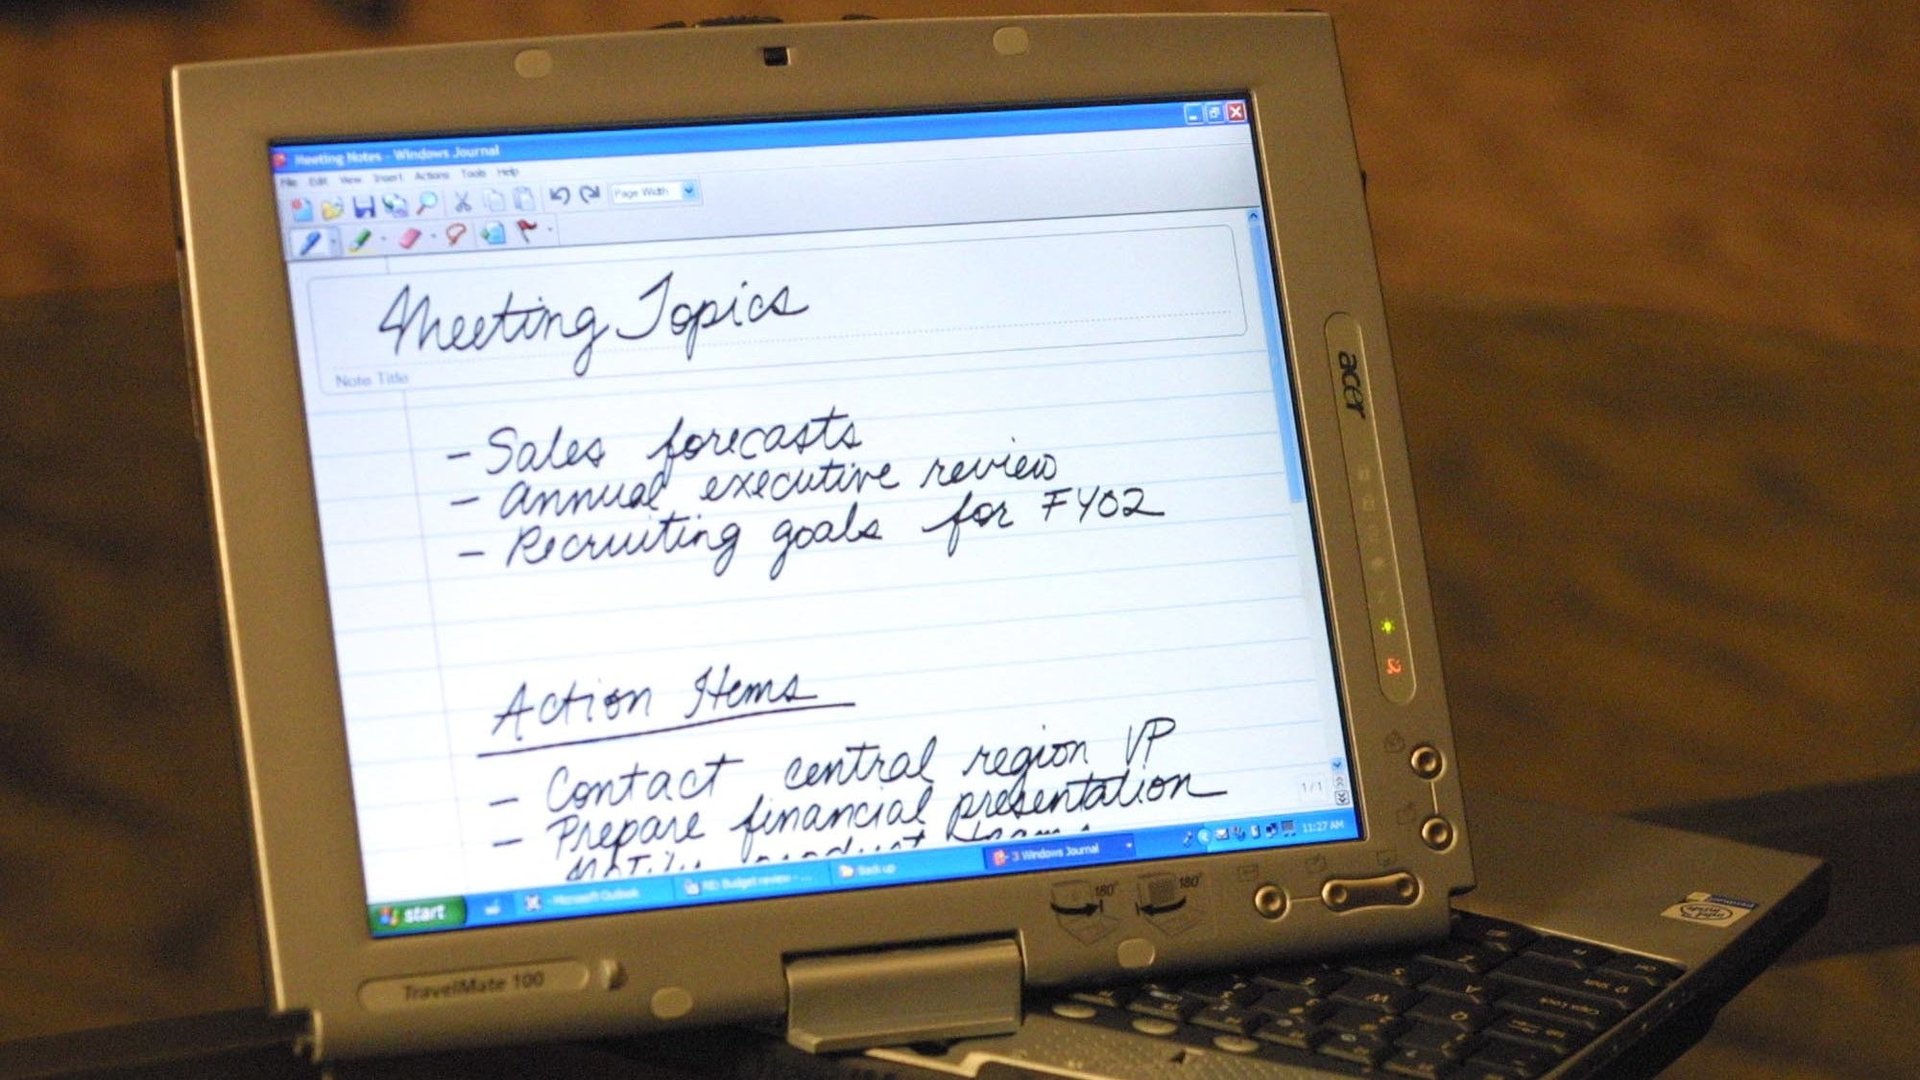 Meeting Notes - Windows Journal
File Edit View Insert Actions Tools Help
Page Width
Meeting Topics
Note Title
- Sales forecasts
- Annual executive review
- Recruiting goals for FY02
Action Items
- Contact central region VP
- Prepare financial presentation
product teams
1/1
start
Microsoft Outlook
RE: Budget review - ...
Back up
3 Windows Journal
11:27 AM
acer
180°
180°
TravelMate 100
Caps Lock